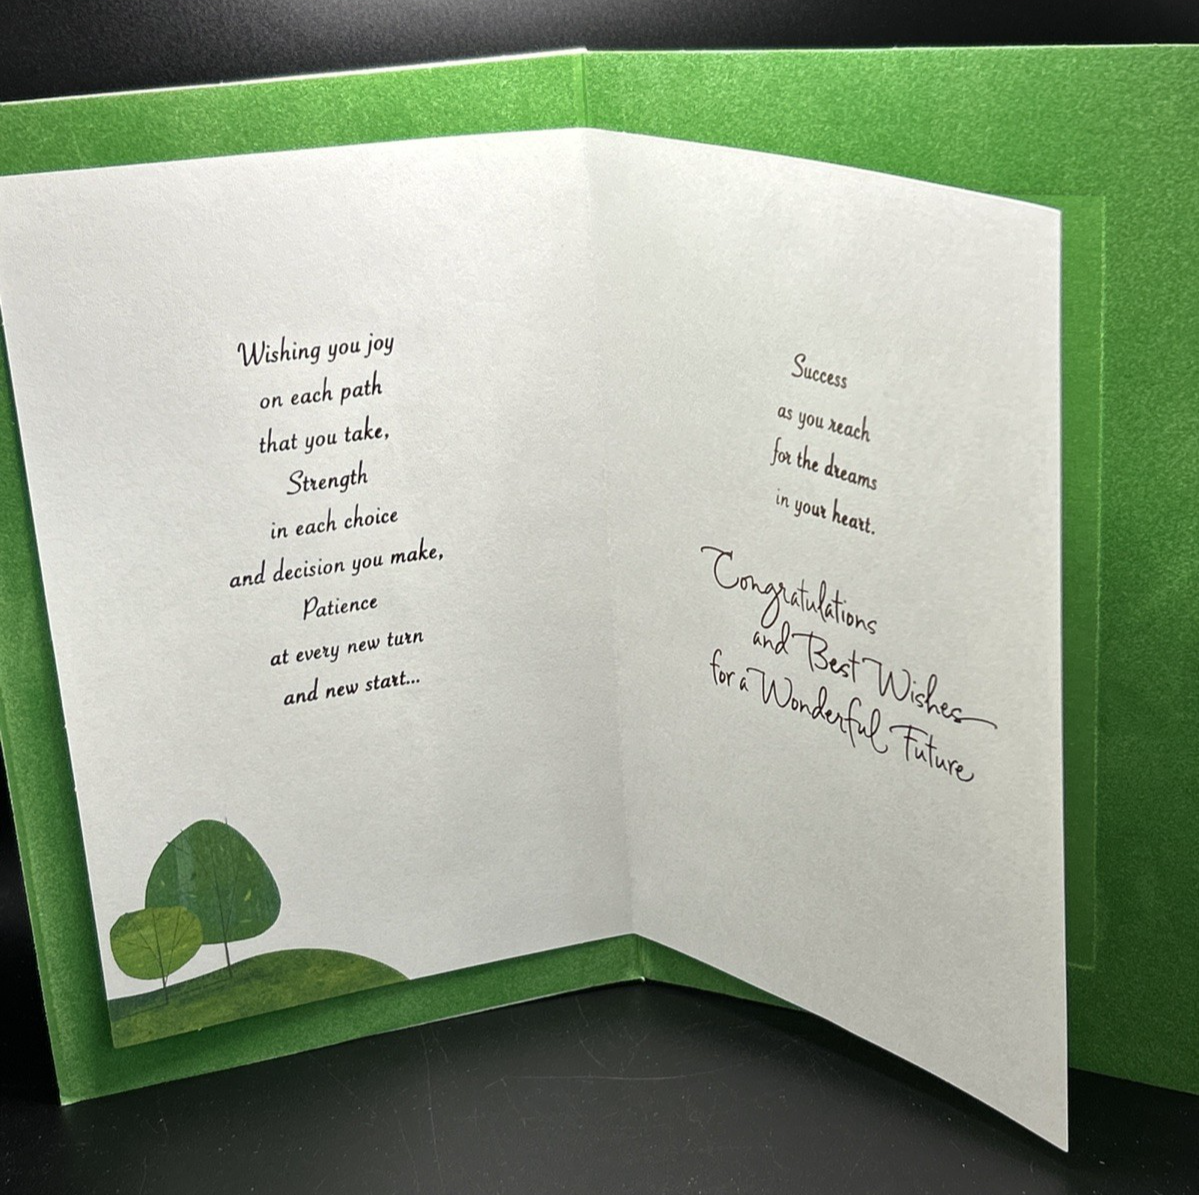 Wishing you joy
on each path
that you take,
Strength
in each choice
and decision you make,
Patience
at every new turn
and new start...
Success
as you reach
for the dreams
in your heart.
Congratulations
and Best Wishes
for a Wonderful Future